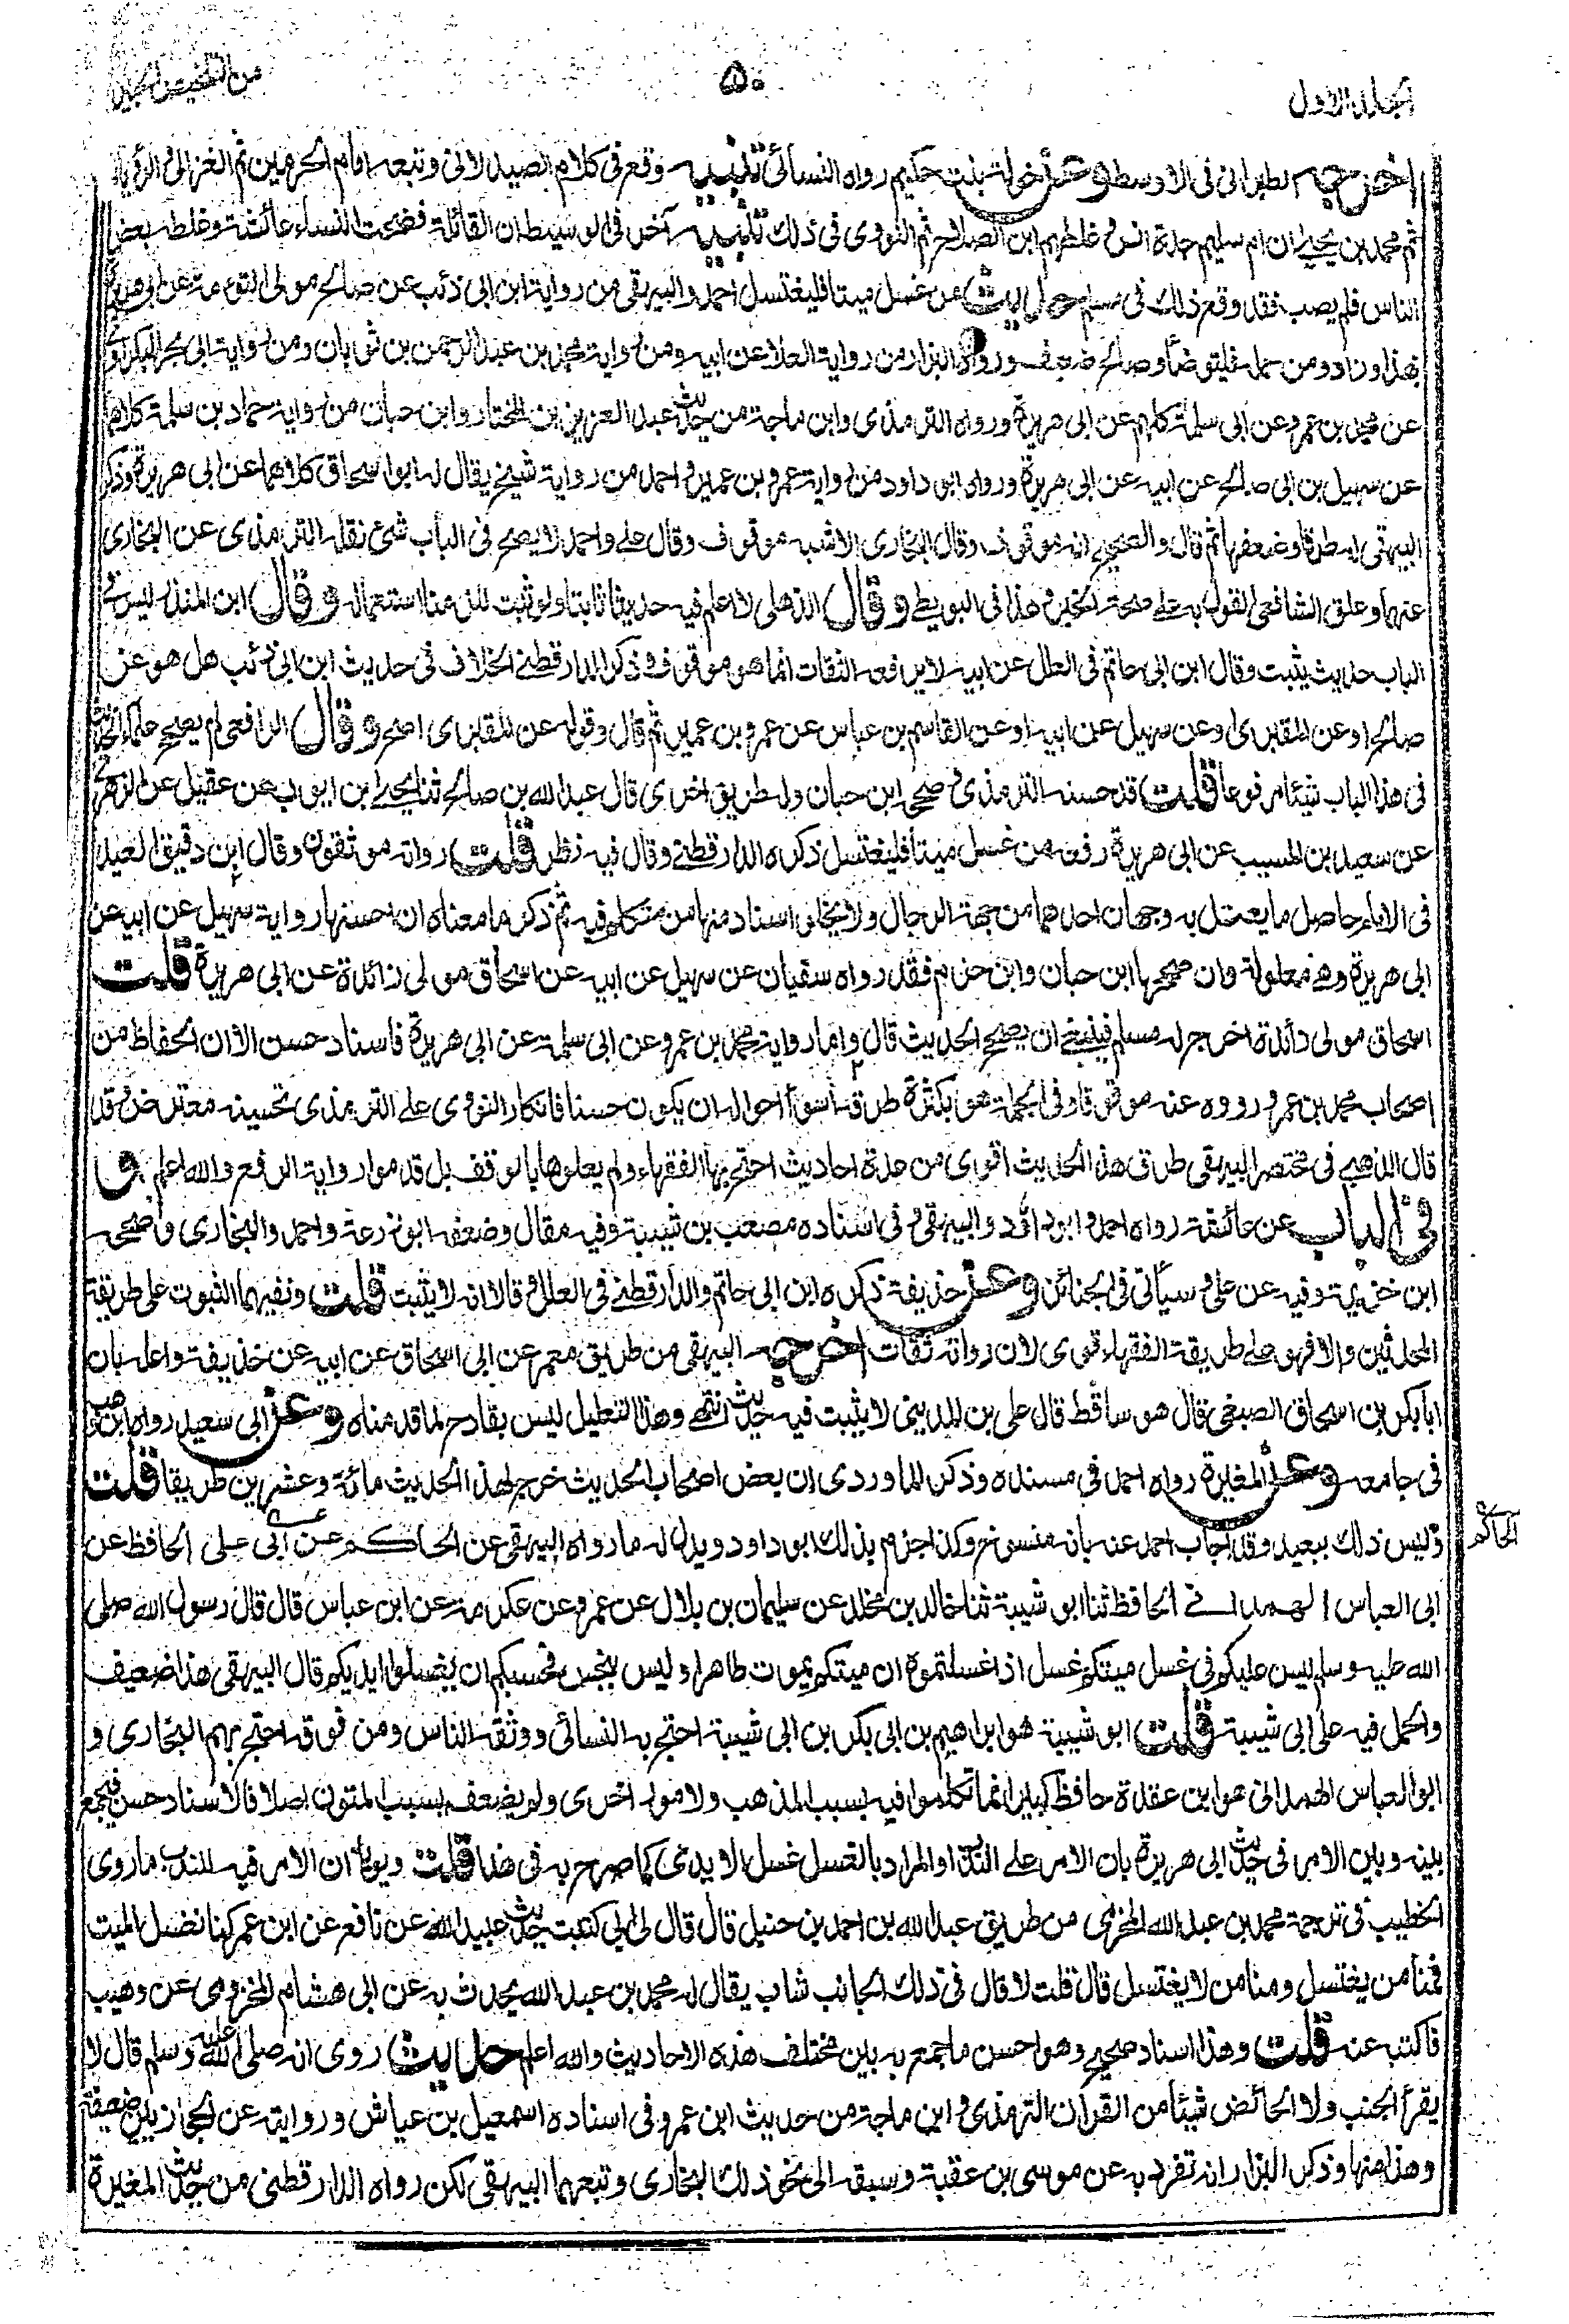 المجلد الاول
٥٠
من التلخيص الحبير
اخرجه الطبرانى فى الاوسط وعن خولة بنت حكيم رواه النسائى تنبيه وقع فى كلام الصيدلانى وتبعه امام الحرمين ثم الغزالى ثم الرويانى
ثم محمد بن يحيى ان ام سليم جدة انس وغلطهم ابن الصلاح ثم النووى فى ذلك تنبيه آخر فى الوسيط ان القائلة فضحت النساء عائشة وغلطه بعض
الناس فلم يصب فقد وقع ذلك فى مسلم حديث من غسل ميتا فليغتسل احمد والبيهقى من رواية ابن ابى ذئب عن صالح مولى التوءمة عن ابى هريرة
بهذا وزاد ومن حمله فليتوضأ وصالح ضعيف ورواه البزار من رواية العلاء عن ابيه ومن رواية محمد بن عبد الرحمن بن ثوبان ومن رواية ابى بحر البكراوى
عن محمد بن عمرو عن ابى سلمة كلهم عن ابى هريرة ورواه الترمذى وابن ماجة من حديث عبد العزيز بن المختار وابن حبان من رواية حماد بن سلمة كلاهما
عن سهيل بن ابى صالح عن ابيه عن ابى هريرة ورواه ابو داود من رواية عمرو بن عمير واحمد من رواية شيخ يقال له ابو اسحاق كلاهما عن ابى هريرة وذكر
البيهقى له طرقا وضعفها ثم قال والصحيح انه موقوف وقال البخارى الاشبه موقوف وقال على واحمد لا يصح فى الباب شئ نقله الترمذى عن البخارى
عنهما وعلق الشافعى القول به على صحة الخبر وهذا فى البويطى وقال الذهلى لا اعلم فيه حديثا ثابتا ولو ثبت للزمنا استعماله وقال ابن المنذر ليس فى
الباب حديث يثبت وقال ابن ابى حاتم فى العلل عن ابيه لا يرفعه الثقات انما هو موقوف وذكر الدارقطنى الخلاف فى حديث ابن ابى ذئب هل هو عن
صالح او عن المقبرى او عن سهيل عن ابيه او عن القاسم بن عباس عن عمرو بن عمير ثم قال وقوله عن المقبرى اصح وقال الرافعى لم يصحح علماء الحديث
فى هذا الباب شيئا مرفوعا قلت قد حسنه الترمذى وصححه ابن حبان وله طريق اخرى قال عبد الله بن صالح ثنا يحيى بن ايوب عن عقيل عن الزهرى
عن سعيد بن المسيب عن ابى هريرة رفعه من غسل ميتا فليغتسل ذكره الدارقطنى وقال فيه نظر قلت رواته موثقون وقال ابن دقيق العيد
فى الامام حاصل ما يعتل به وجهان احدهما من جهة الرجال ولا يخلو اسناد منها من متكلم فيه ثم ذكر ما معناه ان احسنها رواية سهيل عن ابيه عن
ابى هريرة وهى معلولة وان صححها ابن حبان وابن حزم فقد رواه سفيان عن سهيل عن ابيه عن اسحاق مولى زائدة عن ابى هريرة قلت
اسحاق مولى زائدة اخرج له مسلم فينبغى ان يصحح الحديث قال واما رواية محمد بن عمرو عن ابى سلمة عن ابى هريرة فاسناد حسن الا ان الحفاظ من
اصحاب محمد بن عمرو رووه عنه موقوفا وفى الجملة هو بكثرة طرقه اسوأ احواله ان يكون حسنا فانكار النووى على الترمذى تحسينه معترض وقد
قال الذهبى فى مختصر البيهقى طرق هذا الحديث اقوى من عدة احاديث احتج بها الفقهاء ولم يعلوها بالوقف بل قدموا رواية الرفع والله اعلم و
فى الباب عن عائشة رواه احمد وابو داؤد والبيهقى وفى اسناده مصعب بن شيبة وفيه مقال وضعفه ابو زرعة واحمد والبخارى وصححه
ابن خزيمة وفيه عن على وسيأتى فى الجنائز وعن حذيفة ذكره ابن ابى حاتم والدارقطنى فى العلل وقالا انه لا يثبت قلت ونفيهما الثبوت على طريقة
المحدثين والا فهو على طريقة الفقهاء قوى لان رواته ثقات اخرجه البيهقى من طريق معمر عن ابى اسحاق عن ابيه عن حذيفة واعله بان
ابا بكر بن اسحاق الصبغى قال هو ساقط قال على بن المدينى لا يثبت فيه حديث انتهى وهذا التعليل ليس بقادح لما قدمناه وعن ابى سعيد رواه ابن وهب
فى جامعه وعن المغيرة رواه احمد فى مسنده وذكر الماوردى ان بعض اصحاب الحديث خرج لهذا الحديث مائة وعشرين طريقا قلت
وليس ذلك ببعيد وقد اجاب احمد عنه بانه منسوخ وكذا جزم بذلك ابو داود ويدل له ما رواه البيهقى عن الحاكم عن ابى على الحافظ عن
الحاكم
ابى العباس الهمدانى الحافظ ثنا ابو شيبة ثنا خالد بن مخلد عن سليمان بن بلال عن عمرو عن عكرمة عن ابن عباس قال قال رسول الله صلى
الله عليه وسلم ليس عليكم فى غسل ميتكم غسل اذا غسلتموه ان ميتكم يموت طاهرا وليس بنجس فحسبكم ان يغسلوا ايديكم قال البيهقى هذا ضعيف
والحمل فيه على ابى شيبة قلت ابو شيبة هو ابراهيم بن ابى بكر بن ابى شيبة احتج به النسائى ووثقه الناس ومن فوقه احتج بهم البخارى و
ابو العباس الهمدانى هو ابن عقدة حافظ كبير انما تكلموا فيه بسبب المذهب ولامور اخرى ولم يضعف بسبب المتون اصلا فالاسناد حسن فيجمع
بينه وبين الامر فى حديث ابى هريرة بان الامر على الندب او المراد بالغسل غسل الايدى كما صرح به فى هذا قلت ويؤيد ان الامر فيه للندب ما روى
الخطيب فى ترجمة محمد بن عبد الله المخرمى من طريق عبد الله بن احمد بن حنبل قال قال لى ابى كتبت حديث عبيد الله عن نافع عن ابن عمر كنا نغسل الميت
فمنا من يغتسل ومنا من لا يغتسل قال قلت لا قال فى ذلك الجانب شاب يقال له محمد بن عبد الله يحدث به عن ابى هشام المخزومى عن وهيب
فاكتبه عنه قلت وهذا اسناد صحيح وهو احسن ما جمع به بين مختلف هذه الاحاديث والله اعلم حديث روى انه صلى الله عليه وسلم قال لا
يقرأ الجنب ولا الحائض شيئا من القرآن الترمذى وابن ماجة من حديث ابن عمر وفى اسناده اسمعيل بن عياش وروايته عن الحجازيين ضعيفة
وهذا منها وذكر البزار انه تفرد به عن موسى بن عقبة وسبقه الى نحو ذلك البخارى وتبعهما البيهقى لكن رواه الدارقطنى من حديث المغيرة